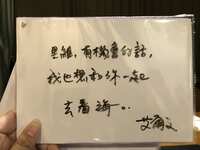 里維，有機會的話，
我也想和你一起
去看海。
艾爾文